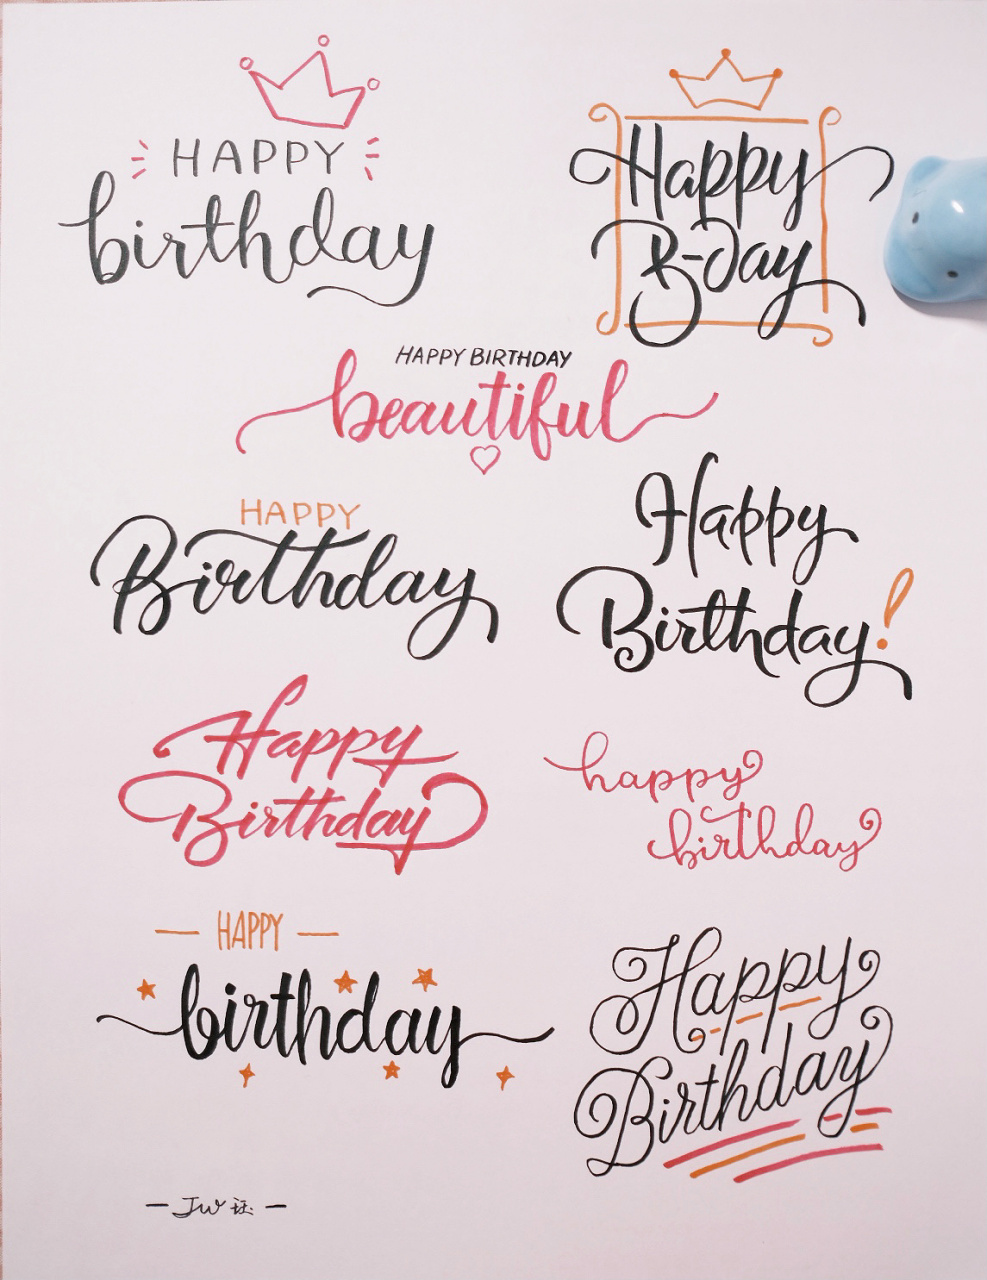 HAPPY
birthday
Happy
B-day
HAPPY BIRTHDAY
beautiful
HAPPY
Birthday
Happy
Birthday!
Happy
Birthday
happy
birthday
HAPPY
birthday
Happy
Birthday
— JW